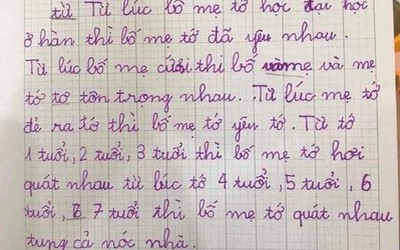 từ Từ lúc bố mẹ tớ học đại học
ở hàn thì bố mẹ tớ đã yêu nhau.
Từ lúc bố mẹ cưới thì bố và mẹ
tớ tơ tôn trọng nhau. Từ lúc mẹ tớ
đẻ ra tớ thì bố mẹ tớ yêu tớ. Từ tớ
1 tuổi, 2 tuổi, 3 tuổi thì bố mẹ tớ hơi
quát nhau từ lúc tớ 4 tuổi, 5 tuổi, 6
tuổi, 7 tuổi thì bố mẹ tớ quát nhau
tung cả nóc nhà.